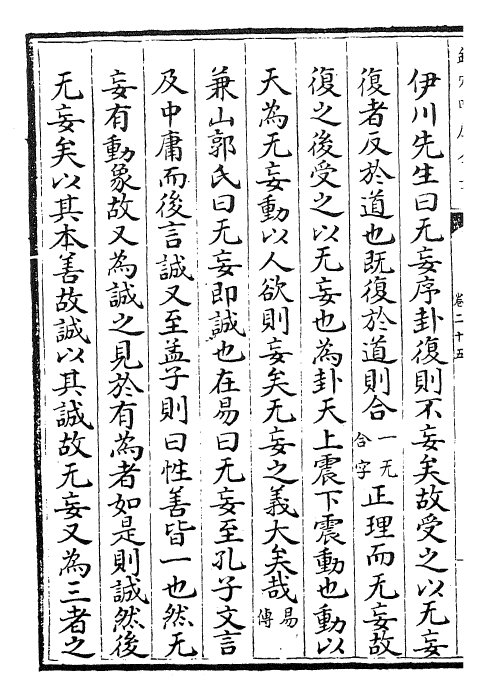 伊川先生曰无妄序卦復則不妄矣故受之以无妄
復者反於道也既復於道則合一无合字正理而无妄故
復之後受之以无妄也為卦天上震下震動也動以
天為无妄動以人欲則妄矣无妄之義大矣哉易傳
兼山郭氏曰无妄即誠也在易曰无妄至孔子文言
及中庸而後言誠又至孟子則曰性善皆一也然无
妄有動象故又為誠之見於有為者如是則誠然後
无妄矣以其本善故誠以其誠故无妄又為三者之
卷二十五